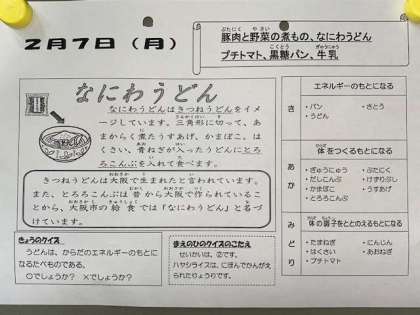 2月7日（月）
豚肉と野菜の煮もの、なにわうどん
プチトマト、黒糖パン、牛乳
なにわうどん
なにわうどんはきつねうどんをイメ
ージしています。三角形に切って、あ
まからく煮たうすあげ、かまぼこ、は
くさい、青ねぎが入ったうどんにとろ
ろこんぶを入れて食べます。
きつねうどんは大阪で生まれたと言われています。
また、とろろこんぶは昔から大阪で作られているこ
とから、大阪市の給食では「なにわうどん」と名づ
けています。
きょうのクイズ
うどんは、からだのエネルギーのもとに
なるたべものである。
○でしょうか？ ×でしょうか？
まえのひのクイズのこたえ
せいかいは、②です。
ハヤシライスは、にほんでかんがえ
られたりょうりです。
エネルギーのもとになる
き
・パン ・さとう
・うどん
体をつくるもとになる
あか
・ぎゅうにゅう ・ぶたにく
・だしこんぶ ・けずりぶし
・かまぼこ ・うすあげ
・とろろこんぶ
体の調子をととのえるもとになる
みどり
・たまねぎ ・にんじん
・はくさい ・あおねぎ
・プチトマト